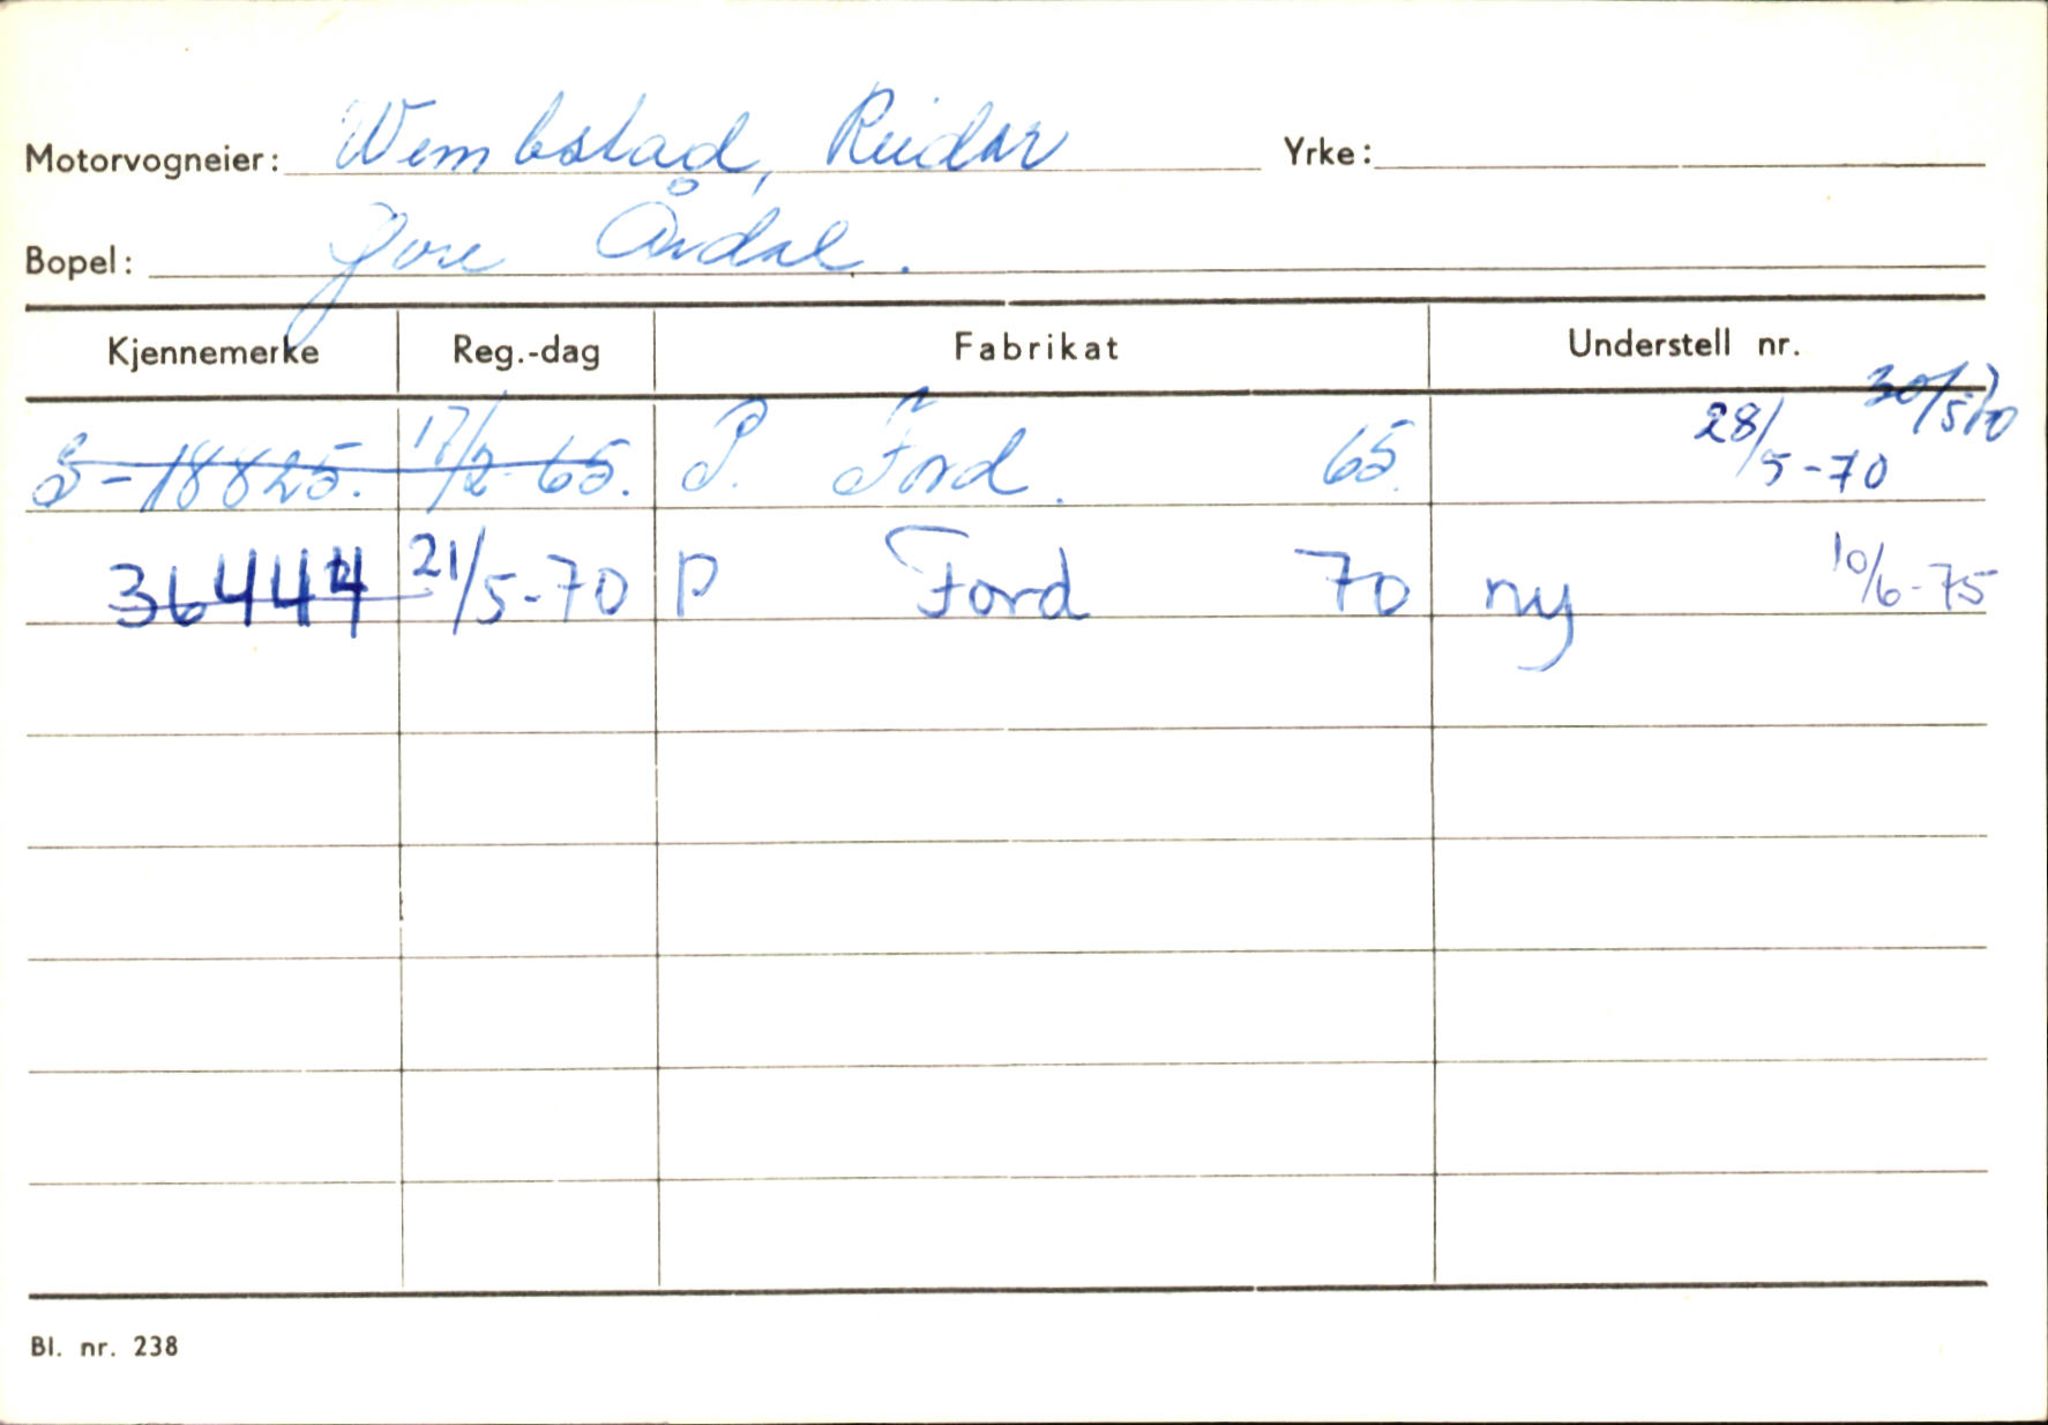 Motorvogneier: Wembstad, Reidar Yrke:
Bopel: Øvre Årdal.
Kjennemerke Reg.-dag Fabrikat Understell nr.
30/5 70
S-18825. 17/2-65. P. Ford. 65. 28/5-70
36444 21/5-70 P Ford 70 ny 10/6-75
Bl. nr. 238